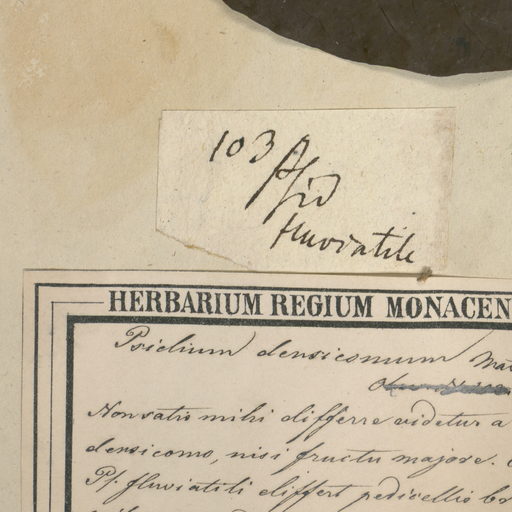 103 Psid
fluviatile
HERBARIUM REGIUM MONACEN
Psidium densicomum Mar
Non satis mihi differre videtur a
densicomo, nisi fructu majore.
Ps. fluviatili differt pedicellis br